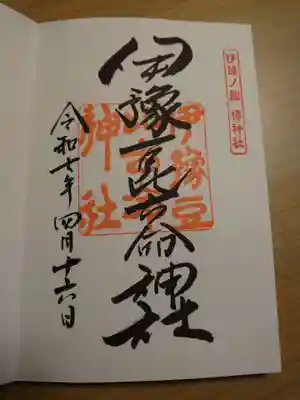 伊豫ノ國 椿神社
伊豫豆比古命神社
伊豫豆
比古命
神社
令和七年 四月十六日